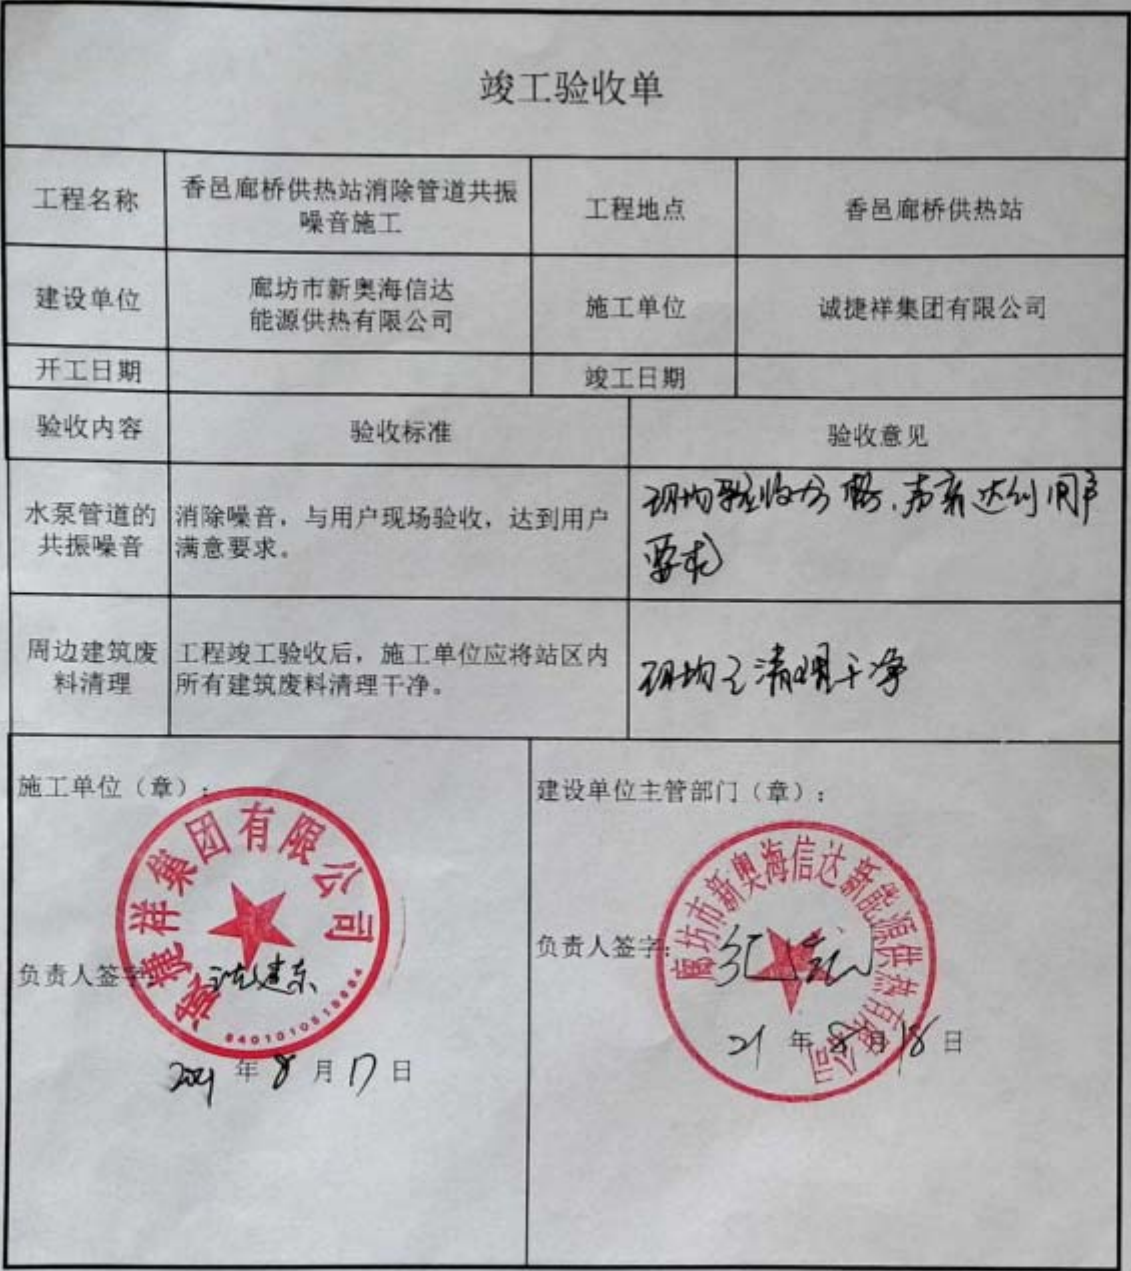 竣工验收单
工程名称
香邑廊桥供热站消除管道共振
噪音施工
工程地点
香邑廊桥供热站
建设单位
廊坊市新奥海信达
能源供热有限公司
施工单位
诚捷祥集团有限公司
开工日期
竣工日期
验收内容
验收标准
验收意见
水泵管道的
共振噪音
消除噪音，与用户现场验收，达到用户
满意要求。
现场验收合格，达到用户
要求
周边建筑废
料清理
工程竣工验收后，施工单位应将站区内
所有建筑废料清理干净。
现场已清理干净
施工单位（章）：
诚捷祥集团有限公司
负责人签字：
建东
2021年8月17日
建设单位主管部门（章）：
廊坊市新奥海信达新能源供热有限公司
负责人签字：
21年8月18日